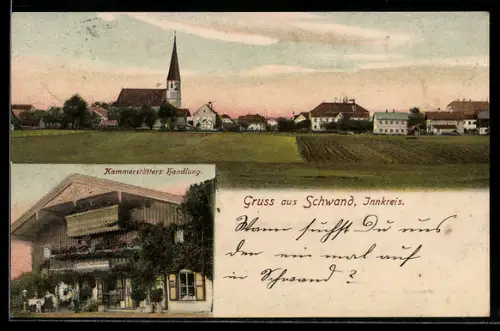 Kammerstätters Handlung.
Gruss aus Schwand, Innkreis.
Wann suchst Du uns
denn ein mal auf
in Schwand ?